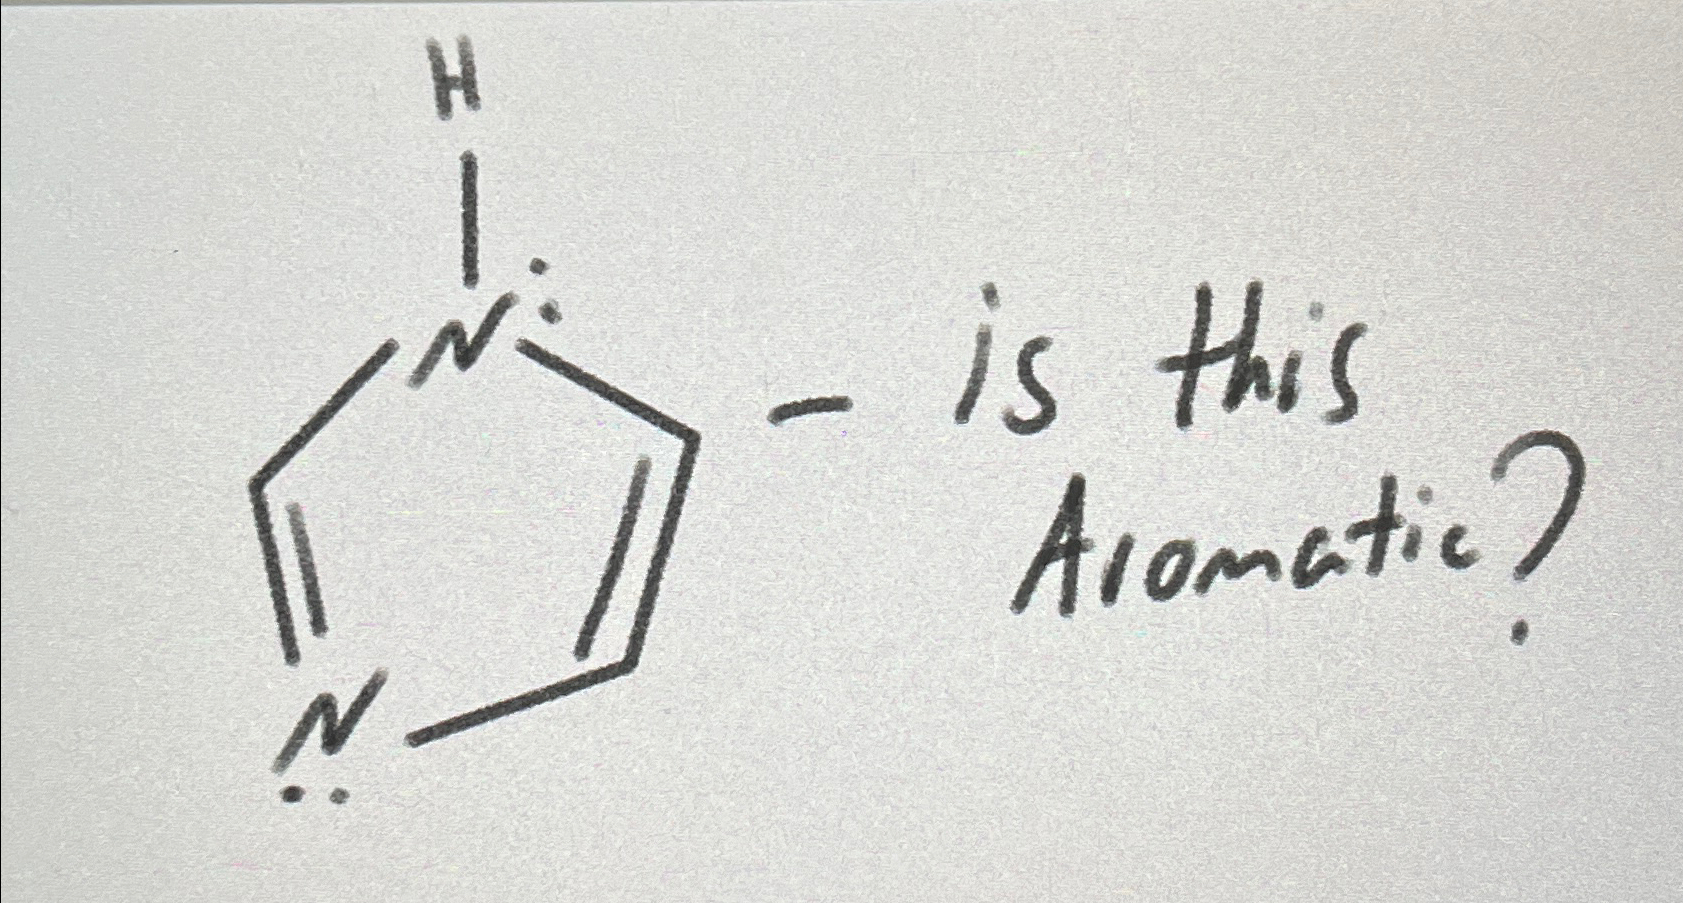 H
N
- is this
Aromatic?
N